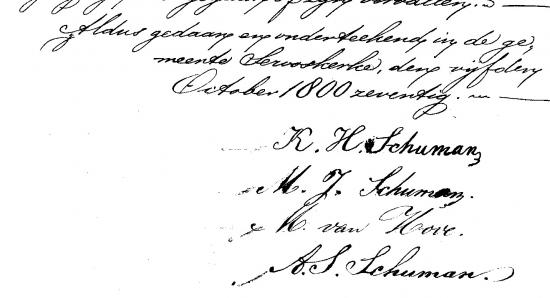 Aldus gedaan en onderteekend in de ge,
meente Serooskerke, den vijfden
October 1800 zeventig.
K. H. Schuman,
M. J. Schuman.
M. van Hove.
A. S. Schuman.